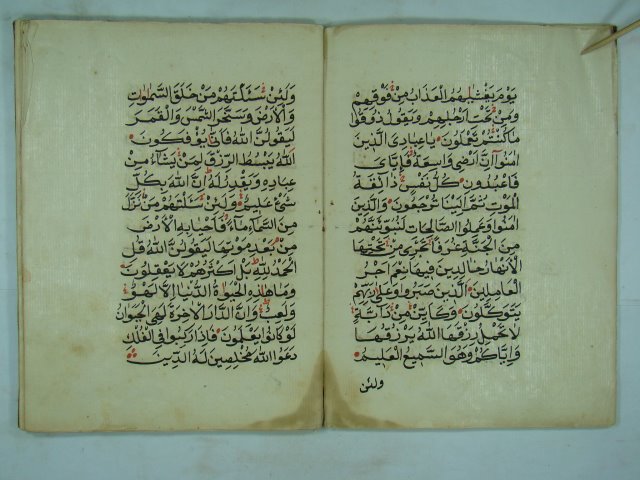 يَوْمَ يَغْشٰيهُمُ الْعَذَابُ مِنْ فَوْقِهِمْ
وَمِنْ تَحْتِ اَرْجُلِهِمْ وَيَقُولُ ذُوقُوا
مَا كُنْتُمْ تَعْمَلُونَ يَا عِبَادِيَ الَّذِينَ
اٰمَنُوا اِنَّ اَرْضِى وَاسِعَةٌ فَاِيَّاىَ
فَاعْبُدُونِ كُلُّ نَفْسٍ ذَائِقَةُ
الْمَوْتِ ثُمَّ اِلَيْنَا تُرْجَعُونَ وَالَّذِينَ
اٰمَنُوا وَعَمِلُوا الصَّالِحَاتِ لَنُبَوِّئَنَّهُمْ
مِنَ الْجَنَّةِ غُرَفًا تَجْرِى مِنْ تَحْتِهَا
الْاَنْهَارُ خَالِدِينَ فِيهَا نِعْمَ اَجْرُ
الْعَامِلِينَ الَّذِينَ صَبَرُوا وَعَلٰى رَبِّهِمْ
يَتَوَكَّلُونَ وَكَاَيِّنْ مِنْ دَابَّةٍ
لَا تَحْمِلُ رِزْقَهَا اللّٰهُ يَرْزُقُهَا
وَاِيَّاكُمْ وَهُوَ السَّمِيعُ الْعَلِيمُ
ولئن
وَلَئِنْ سَئَلْتَهُمْ مَنْ خَلَقَ السَّمٰوَاتِ
وَالْاَرْضَ وَسَخَّرَ الشَّمْسَ وَالْقَمَرَ
لَيَقُولُنَّ اللّٰهُ فَاَنّٰى يُؤْفَكُونَ
اَللّٰهُ يَبْسُطُ الرِّزْقَ لِمَنْ يَشَاءُ مِنْ
عِبَادِهِ وَيَقْدِرُ لَهُ اِنَّ اللّٰهَ بِكُلِّ
شَىْءٍ عَلِيمٌ وَلَئِنْ سَئَلْتَهُمْ مَنْ نَزَّلَ
مِنَ السَّمَاءِ مَاءً فَاَحْيَا بِهِ الْاَرْضَ
مِنْ بَعْدِ مَوْتِهَا لَيَقُولُنَّ اللّٰهُ قُلِ
الْحَمْدُ لِلّٰهِ بَلْ اَكْثَرُهُمْ لَا يَعْقِلُونَ
وَمَا هٰذِهِ الْحَيٰوةُ الدُّنْيَا اِلَّا لَهْوٌ
وَلَعِبٌ وَاِنَّ الدَّارَ الْاٰخِرَةَ لَهِىَ الْحَيَوَانُ
لَوْ كَانُوا يَعْلَمُونَ فَاِذَا رَكِبُوا فِى الْفُلْكِ
دَعَوُا اللّٰهَ مُخْلِصِينَ لَهُ الدِّينَ